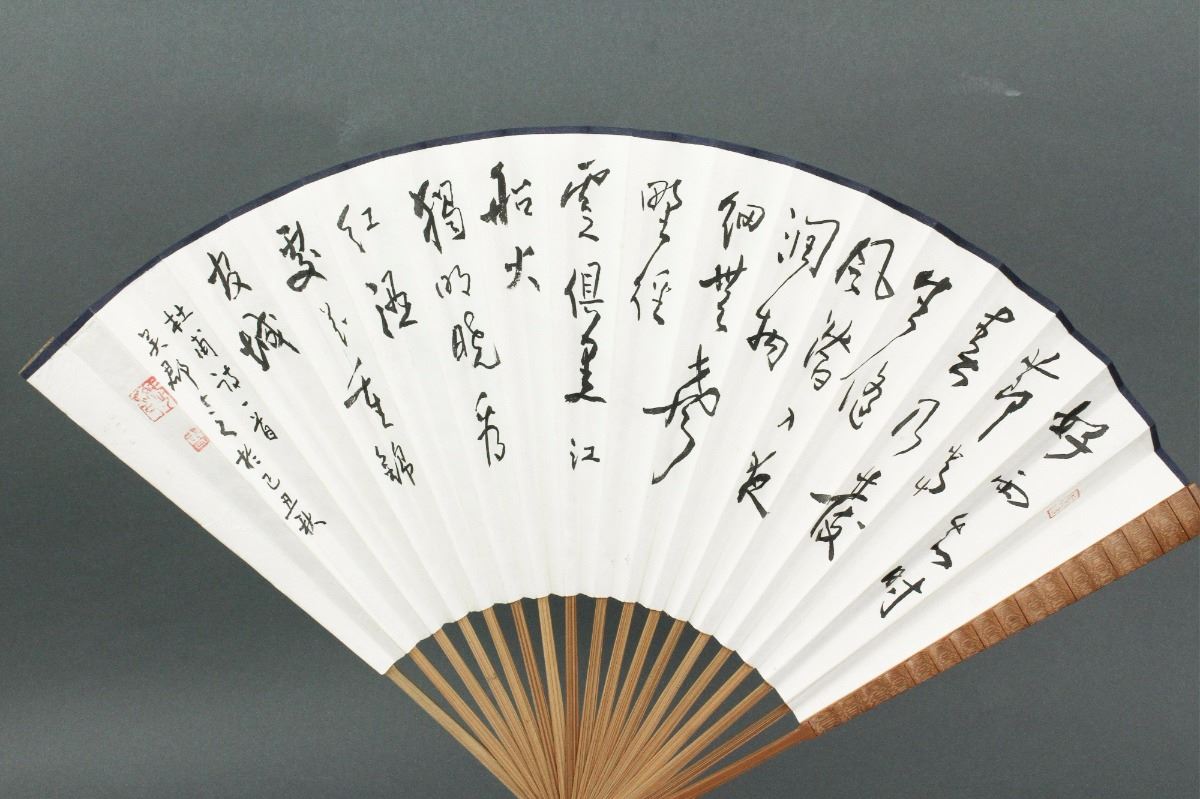 好雨知時
節當
春乃發
生隨
風潛入夜
潤物
細無聲
野徑
雲俱黑江
船火
獨明曉看
紅濕
處花重錦
官城
杜甫詩一首於己丑秋
吳郡